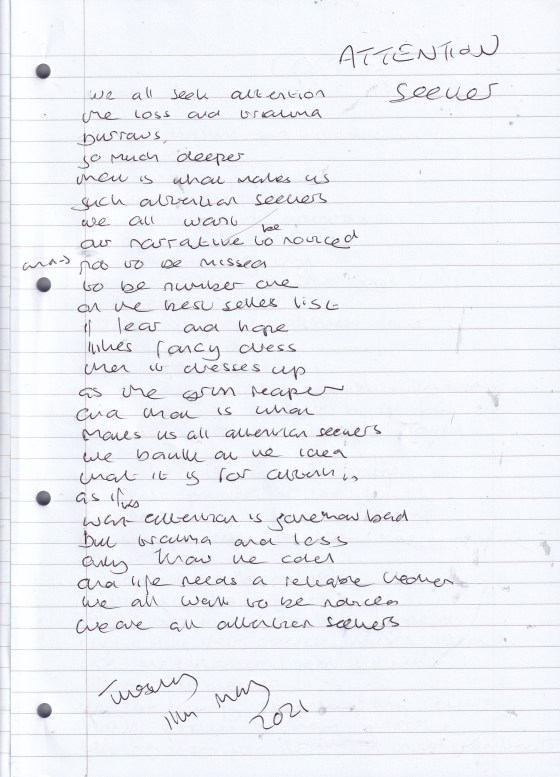 ATTENTION
Seeker
we all seek attention
the loss and trauma
burrows
so much deeper
that is what makes us
such attention seekers
we all want
our narrative to be noticed
and → not to be missed
to be number one
on the best sellers list
if fear and hope
likes fancy dress
then it dresses up
as the grim reaper
and that is what
makes us all attention seekers
we baulk at the idea
that it is for attention
as if
want attention is somehow bad
but trauma and loss
only know the cold
and life needs a reliable
we all want to be noticed
we are all attention seekers
Tuesday
11th May
2021